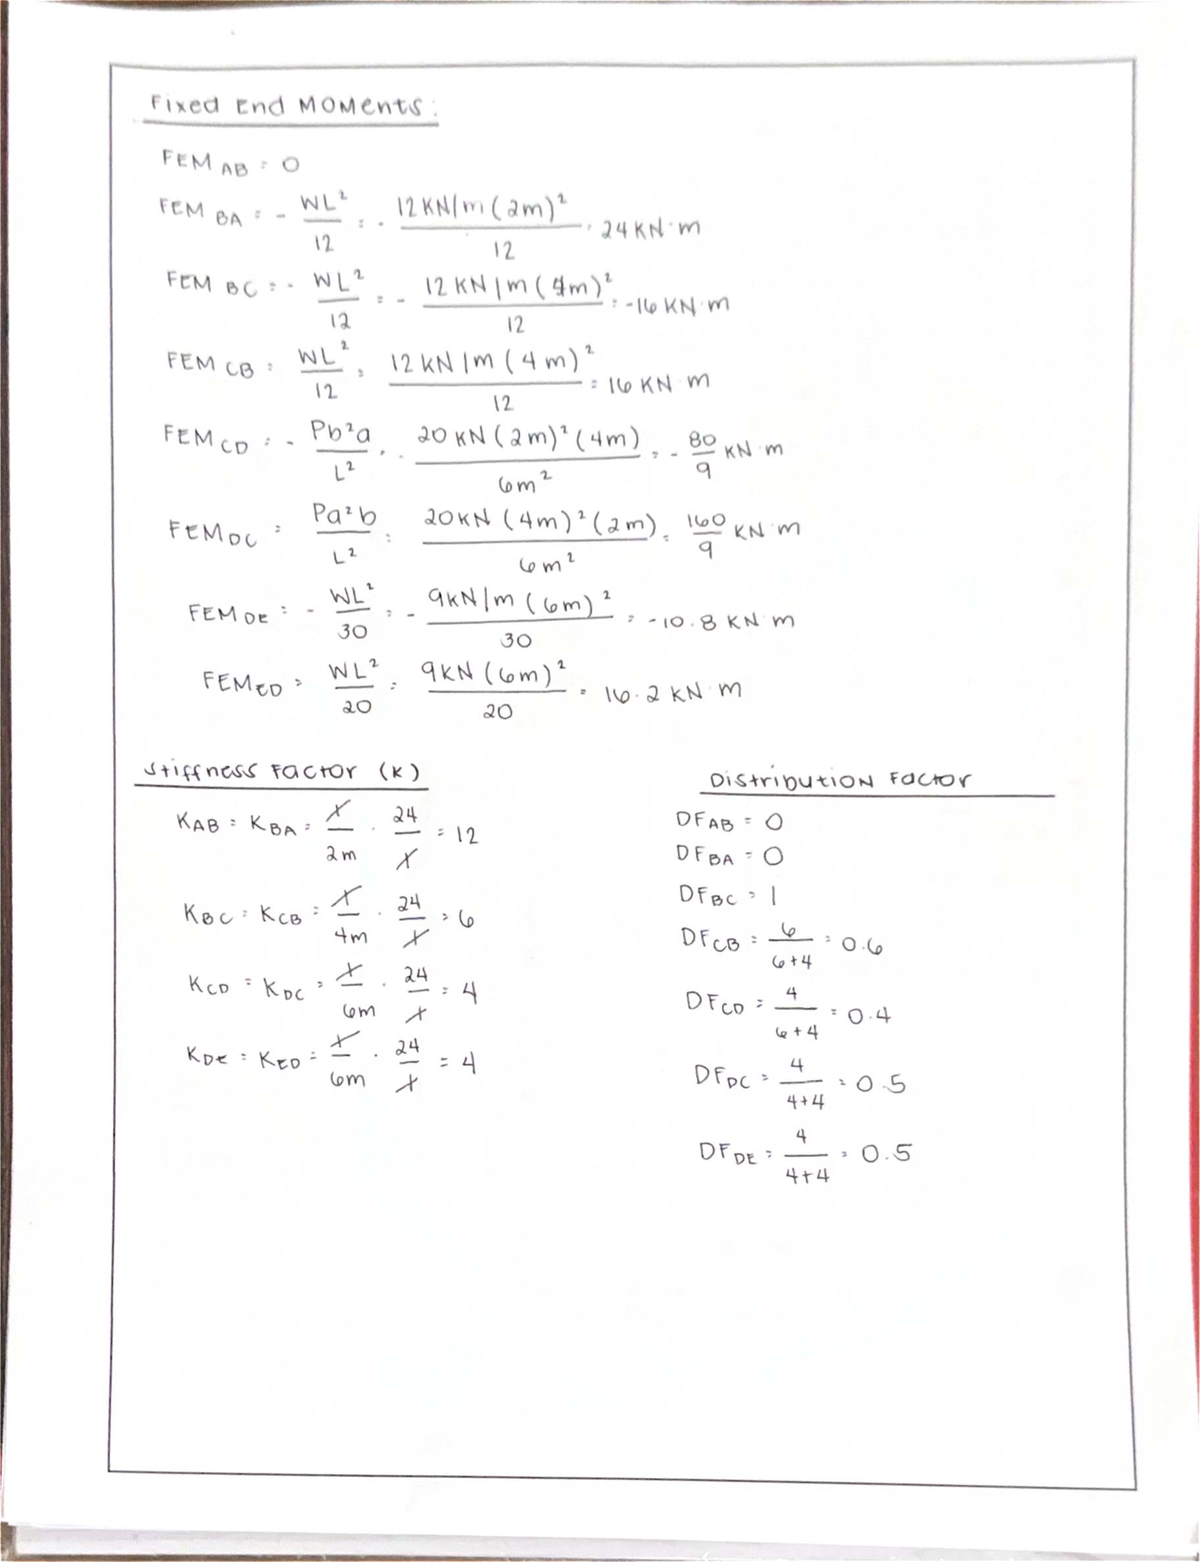 Fixed End MOMents:
FEM AB = 0
FEM BA = - WL²/12 = - 12 KN/m (2m)²/12 = 24 KN·m
FEM BC = - WL²/12 = - 12 KN/m (4m)²/12 = -16 KN·m
FEM CB = WL²/12 = 12 KN/m (4m)²/12 = 16 KN·m
FEM CD = - Pb²a/L² = - 20 KN (2m)² (4m)/6m² = - 80/9 KN·m
FEM DC = Pa²b/L² = 20KN (4m)² (2m)/6m² = 160/9 KN·m
FEM DE = - WL²/30 = - 9KN/m (6m)²/30 = -10.8 KN·m
FEM ED = WL²/20 = 9KN (6m)²/20 = 16.2 KN·m
Stiffness Factor (K)
KAB = KBA = I/2m · 24/I = 12
KBC = KCB = I/4m · 24/I = 6
KCD = KDC = I/6m · 24/I = 4
KDE = KED = I/6m · 24/I = 4
Distribution Factor
DFAB = 0
DFBA = 0
DFBC = 1
DFCB = 6/6+4 = 0.6
DFCD = 4/6+4 = 0.4
DFDC = 4/4+4 = 0.5
DFDE = 4/4+4 = 0.5